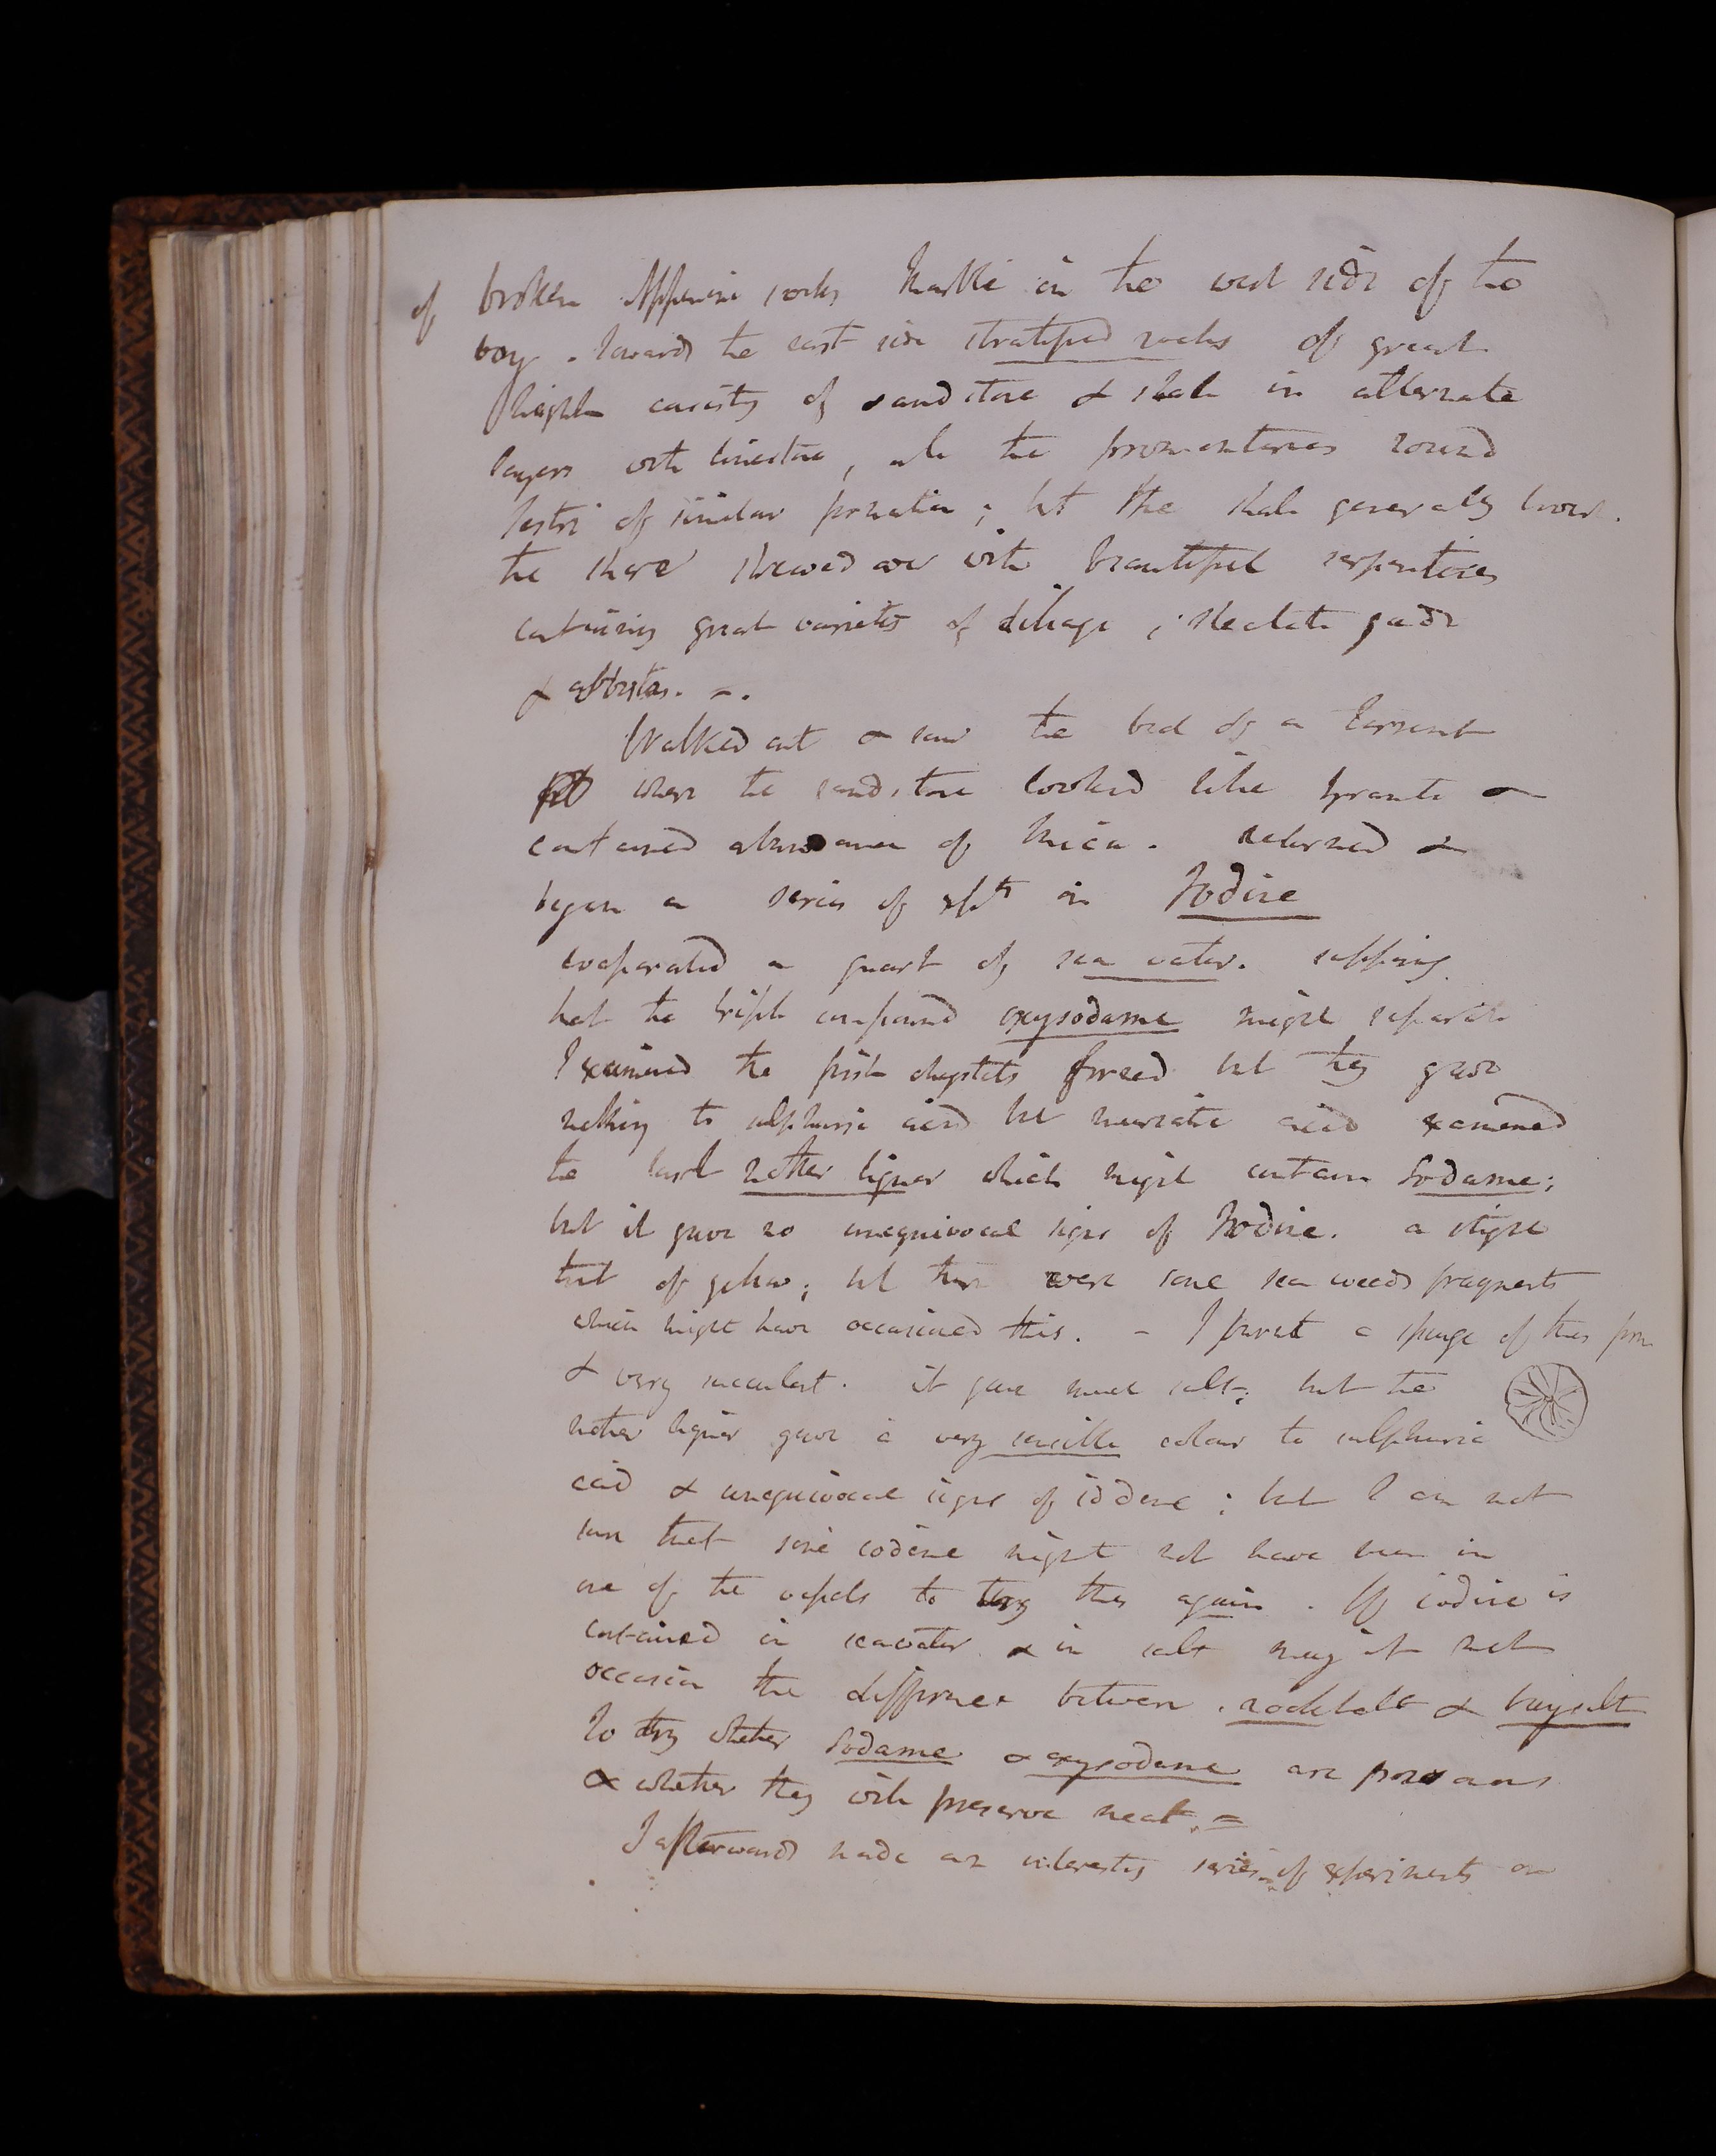 of broken Appenine rocks Marble in the west side of the
bay. Towards the east side stratified rocks of great
height consists of sandstone & shale in alternate
layers with limestone, all the promontories round
Sestri of similar formation; but the shale generally lower.
the shore strewed over with beautiful serpentines
containing great varieties of diliage; steatite jade
& asbestos. -.
Walked out & saw the bed of a torrent
where the sandstone looked like granite &
contained abundance of Mica. returned &
began a series of expts on Iodine
evaporated a quart of sea water. supposing
that the triple compound oxysodame might separate
I examined the first chrystals formed but they gave
nothing to sulphuric acid but muriatic acid examined
the last mother liquor which might contain Sodame;
but it gave no unequivocal signs of Iodine. a slight
tint of yellow; but there were some sea weeds fragments
which might have occasioned this. - I burnt a sponge of this form
& very succulent. it gave much salt; but the
mother liquor gave a very sensible colour to sulphuric
acid & unequivocal signs of iodene; but I am not
sure that some iodene might not have been in
one of the vessels to try this again. If iodine is
contained in seawater & in salt may it not
occasion the difference between rocksalt & baysalt
To try whether Sodame & oxysodame are poisonous
& whether they will preserve meat. =
I afterwards made an interesting series of experiments on